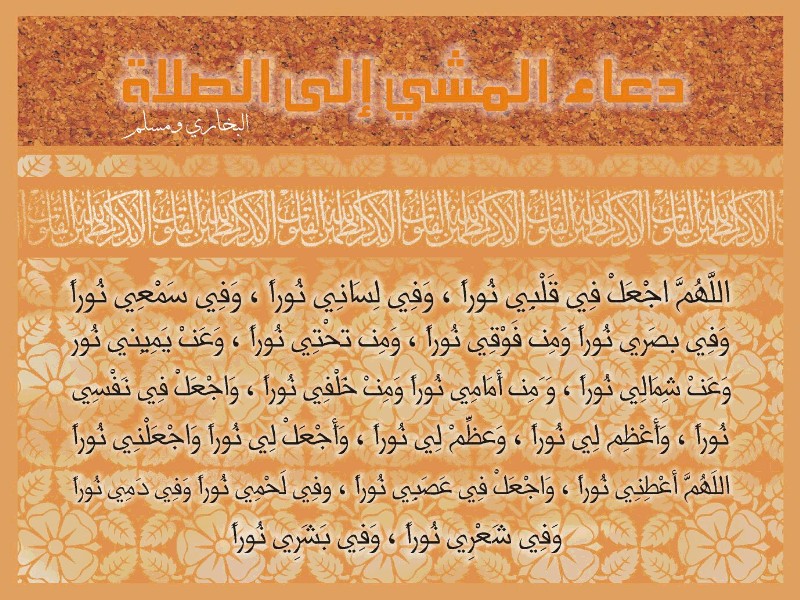 دعاء المشي إلى الصلاة
البخاري ومسلم
ألا بذكر الله تطمئن القلوب ألا بذكر الله تطمئن القلوب ألا بذكر الله تطمئن القلوب ألا بذكر الله تطمئن القلوب ألا بذكر الله تطمئن القلوب ألا بذكر الله تطمئن القلوب
اللَّهُمَّ اجْعَلْ فِي قَلْبِي نُوراً ، وَفِي لِسَانِي نُوراً ، وَفِي سَمْعِي نُوراً
وَفِي بصَرِي نُوراً وَمِن فَوْقِي نُوراً ، وَمِن تحْتِي نُوراً ، وَعَنْ يَمِينِي نُور
وَعَنْ شِمَالِي نُوراً ، وَمَن أَمَامِي نُوراً وَمِنْ خَلْفِي نُوراً ، وَاجْعَلْ فِي نَفْسِي
نُوراً ، وَأَعْظِم لِي نُوراً ، وَعَظِّمْ لِي نُوراً ، وَأَجْعَلْ لِي نُوراً وَاجْعَلْنِي نُوراً
اللَهُمَّ أعْطِنِي نُوراً ، وَاجْعَلْ فِي عَصَبِي نُوراً ، وفِي لَحْمِي نُوراً وَفِي دَمِي نُوراً
وَفِي شَعْرِي نُوراً ، وَفِي بَشَرِي نُوراً